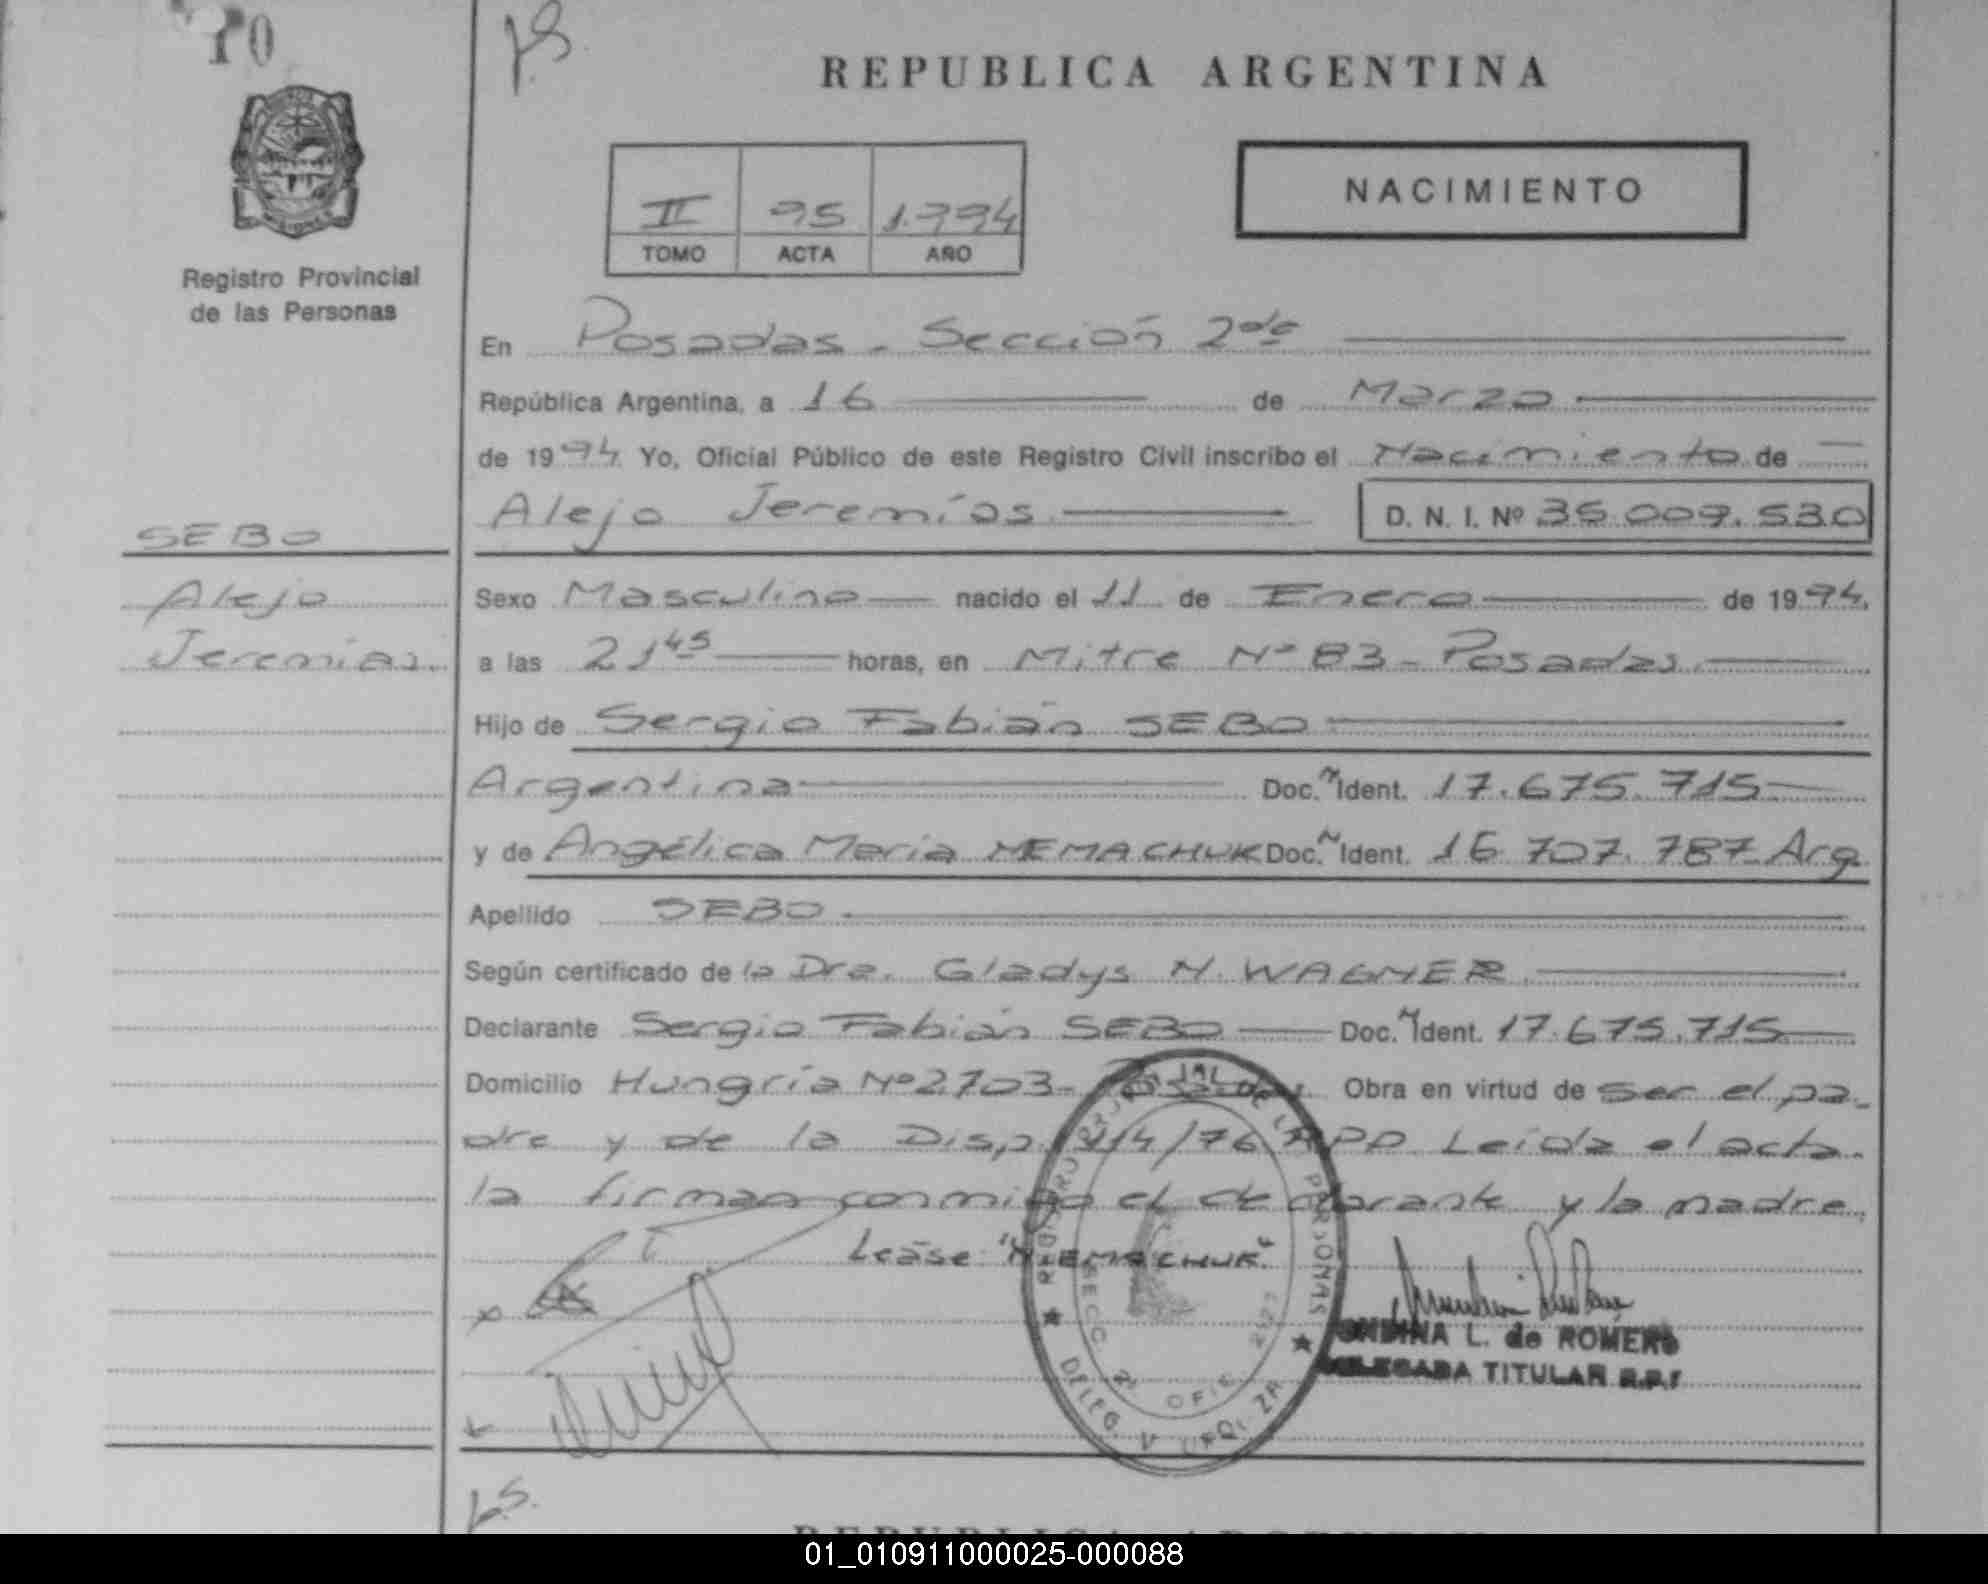 10
REPUBLICA ARGENTINA
II 95 1.994
TOMO ACTA AÑO
NACIMIENTO
Registro Provincial
de las Personas
En Posadas - Sección 2da
República Argentina, a 16 de Marzo
de 1994. Yo, Oficial Público de este Registro Civil inscribo el Nacimiento de
Alejo Jeremías D. N. I. Nº 35.009.530
SEBO
Alejo
Jeremías.
Sexo Masculino nacido el 11 de Enero de 1994.
a las 21 45 horas, en Mitre Nº 83 - Posadas.
Hijo de Sergio Fabián SEBO
Argentina Doc. N Ident. 17.675.715
y de Angélica María MEMACHUK Doc. N Ident. 16.707.787 Arg
Apellido SEBO
Según certificado de la Dra. Gladys N. WAGNER
Declarante Sergio Fabián SEBO Doc. N Ident. 17.675.715
Domicilio Hungría Nº 2703 - Posadas. Obra en virtud de ser el pa-
dre y de la Disp. 114/76 RPP. Leída el acta
la firman conmigo el declarante y la madre.
Lease: "NIEMACHUK"
REGISTRO PROVINCIAL DE LAS PERSONAS
SECC. 2ª OFIC.
DELEG.
L. de ROMERO
DELEGADA TITULAR R.P.P.
REPUBLICA ARGENTINA
01_010911000025-000088